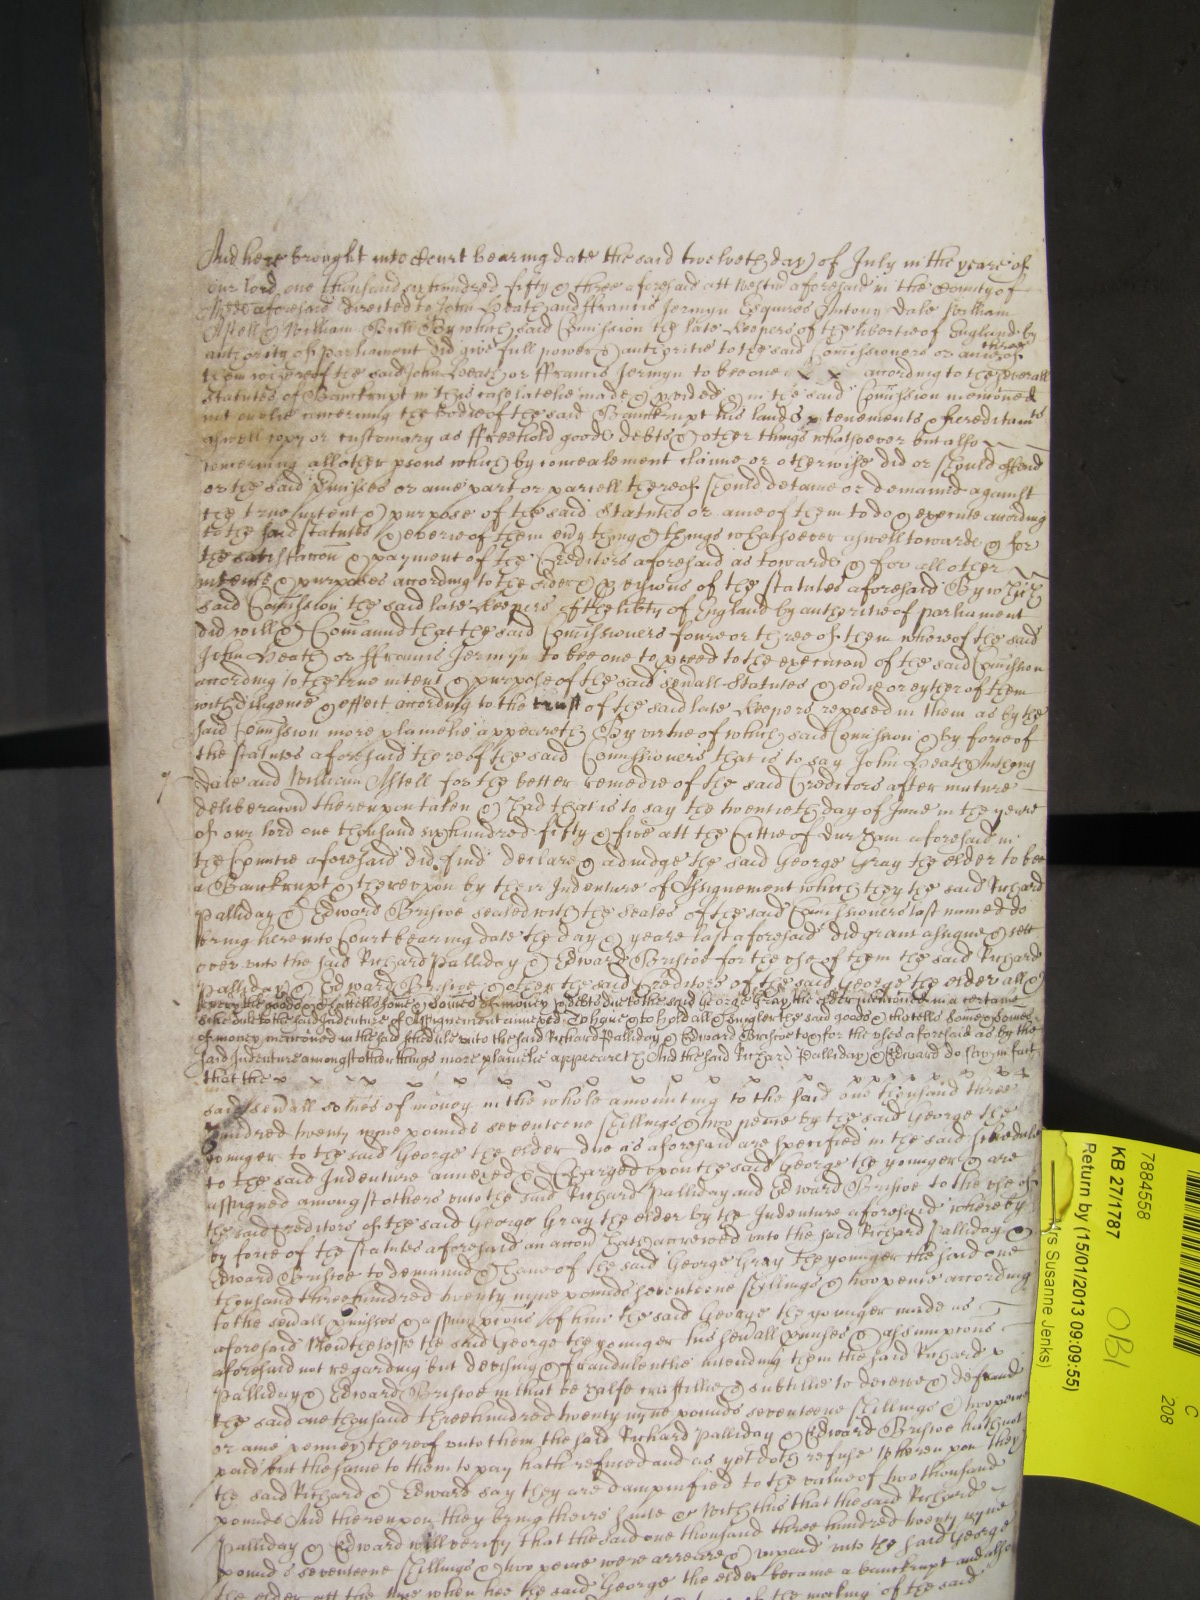 And here brought into Court bearing date the said twelveth day of July in the yeare of
our lord one thousand six hundred fifty & three aforesaid att Westm aforesaid in the County of
Midd aforesaid directed to John Heath and ffrancis Jermyn Esquires Antony Dale William
Astell & William By which said Comission the late Keepers of the libertie of England by
authority of parliament did give full power & authoritie to the said Comissioners or anie three of
them whereof the said John Heath or ffrancis Jermyn to bee one x x according to the severall
Statutes of Banckrupt in this case latelie made & pvided & in the said Comission menconed
not onelie concerning the bodie of the said Banckrupt his lands tenements & hereditamts
aswell copy or customary as ffreehold goods debts & other things whatsoever but also
concerning all other psons which by concealement claime or otherwise did or should offend
or the said pmisses or anie part or parcell thereof should detaine or demaund against
the true intent & purpose of the said Statutes or anie of them to do & execute according
to the said statutes & everie of them evy thing & things whatsoever aswell towards & for
the satisfaccon & payment of the Creditors aforesaid as towards & for all other
intents & purposes according to the order & pvisions of the statutes aforesaid By which
said Comission the said late Keepers of the libty of England by authoritie of parliament
did will & Comaund that the said Comissioners foure or three of them whereof the said
John Heath or ffrancis Jermyn to bee one to pceed to the execucon of the said Comission
according to the true intent & purpose of the said sevall Statutes & evie or eyther of them
with diligence & effect according to the trust of the said late Keepers reposed in them as by the
said Comission more plainelie appeareth By virtue of which said Comission & by force of
the statutes aforesaid three of the said Comissioners that is to say John Heath Anthony
Dale and William Astell for the better remedie of the said Creditors after mature
deliberacon thereupon taken & had that is to say the twentieth day of June in the yeare
of our lord one thousand six hundred fifty & five att the Cittie of Durham aforesaid in
the Countie aforesaid did find declare & adiudge the said George Gray the elder to bee
a Banckrupt & thereupon by their Indenture of Assignement which they the said Richard
Palliday & Edward Briscoe sealed with the seales of the said Comissioners last named do
bring here into Court bearing date the day & yeare last aforesaid did grant assigne & sett
over unto the said Richard Palliday & Edward Briscoe for the use of them the said Richard
Palliday & Edward Briscoe & other the said Creditors of the said George the elder all &
the goods & chattells some & somes of money & debts due to the said George Gray the elder menconed in a certaine
schedule to the said Indenture of Assignement annexed To have & to hold all & singler the said goods & chattells some & somes
of money menconed in the said schedule unto the said Richard Palliday & Edward Briscoe to & for the uses aforesaid as by the
said Indenture amongst other things more plainelie appeareth And the said Richard Palliday & Edward do say in fact
that the
said sevall somes of money in the whole amounting to the said one thousand three
hundred twenty nyne pounds seventeene shillings & two pence by the said George the
younger to the said George the elder due as aforesaid are specified in the said schedule
to the said Indenture annexed & charged upon the said George the younger & are
assigned amongst others unto the said Richard Palliday and Edward Briscoe to the use of
the said Creditors of the said George Gray the elder by the Indenture aforesaid whereby
by force of the statutes aforesaid an accon hath accrewed unto the said Richard Palliday &
Edward Briscoe to demaund & have of the said George Gray the younger the said one
thousand three hundred twenty nyne pounds seventeene shillings & two pence according
to the sevall pmisses & assumpcons of him the said George the younger made as
aforesaid Neverthelesse the said George the younger his sevall pmises & assumpcons
aforesaid not regarding but devising & fraudulentlie intending them the said Richard
Palliday & Edward Briscoe in that behalfe craftillie & subtillie to deceive & defraud
the said one thousand three hundred twenty nyne pounds seventeene shillings & two pence
or anie penney thereof unto them the said Richard Palliday & Edward Briscoe hath not
paid but the same to them to pay hath refused and as yet doth refuse Whereupon they
the said Richard & Edward say they are dampnified to the value of two thousand
pounds And thereupon they bring theire suite &c With this that the said Richard
Palliday & Edward will verify that the said one thousand three hundred twenty nyne
pounds seventeene shillings & two pence were arreare & unpaid unto the said George
the elder att the time when hee the said George the elder became a banckrupt and also
the making of the said
7884558
KB 27/1787
Return by (15/01/2013 09:09:55)
Mrs Susanne Jenks)
OBI
C
208